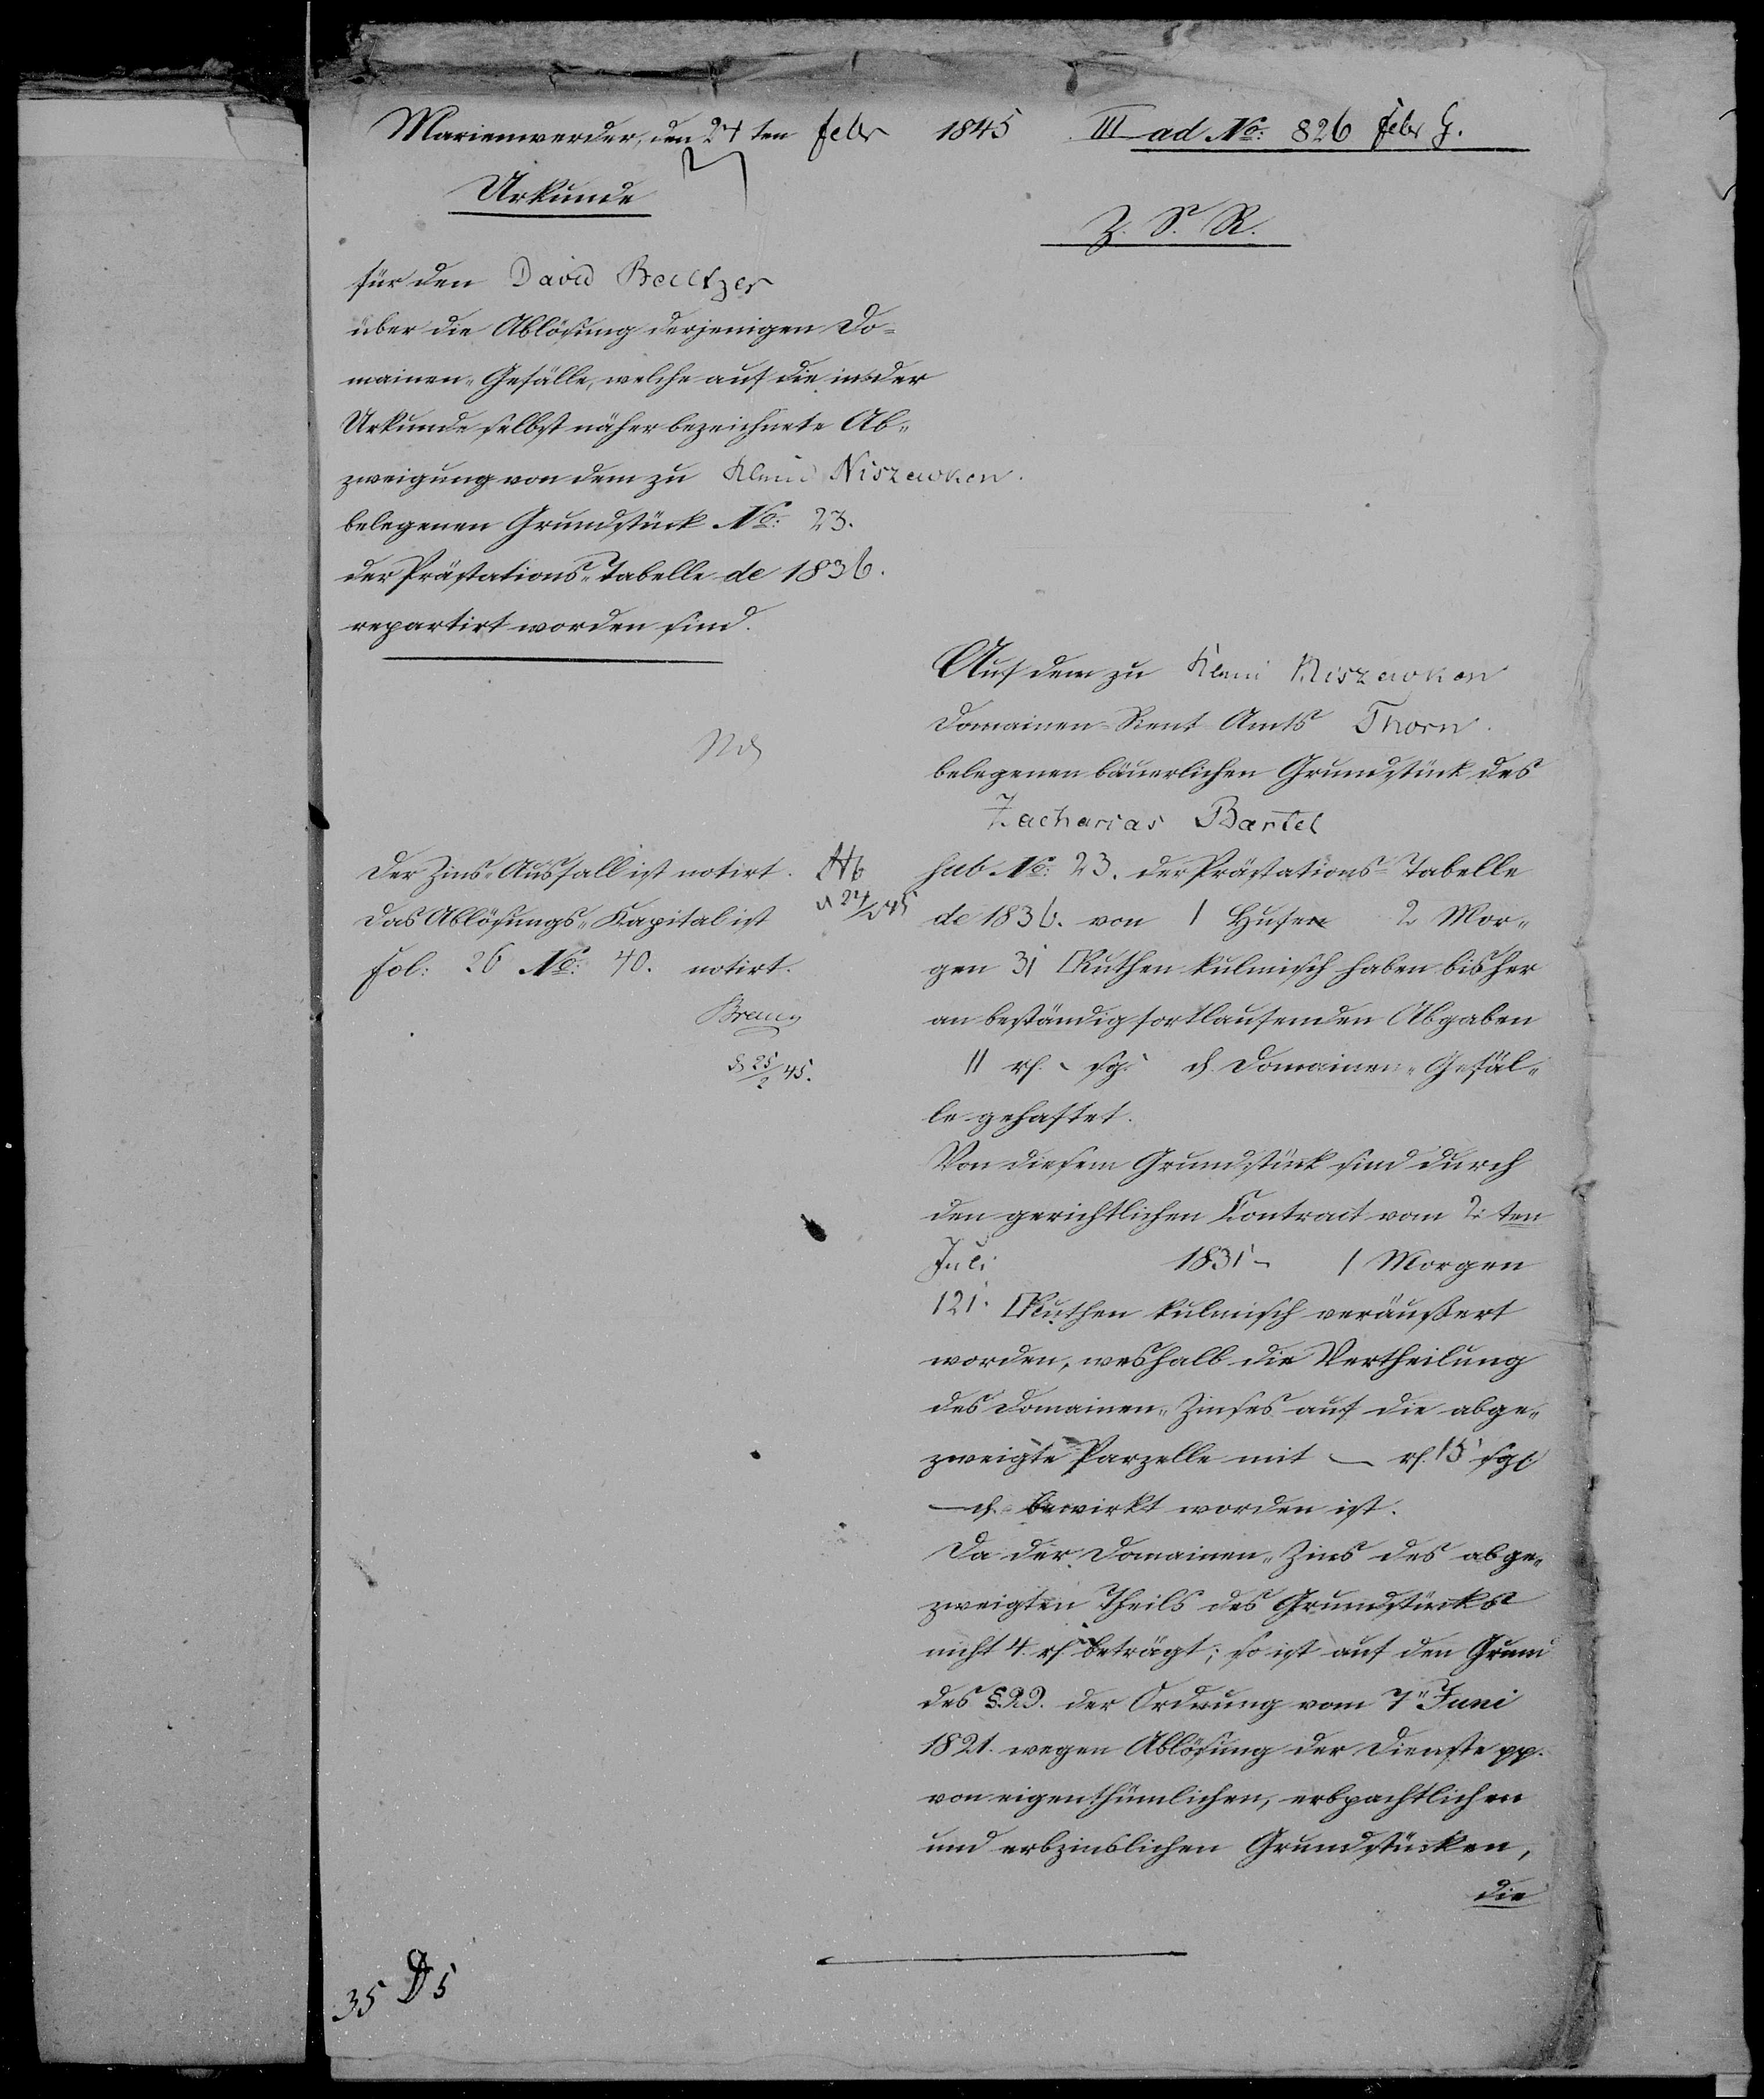 Marienwerder, den 24ten Febr 1845 III ad No: 826 Febr G.
Urkunde
Z. S. R.
für den David Baltzer
über die Ablösung derjenigen Do-
mainen-Gefälle, welche auf die in der
Urkunde selbst näher bezeichnete Ab-
zweigung von dem zu Klein Niszewken
belegenen Grundstück No: 23.
der Prästations-Tabelle de 1836.
repartirt worden sind.
Der Zins-Ausfall ist notirt.
24/2 45
Das Ablösungs-Kapital ist
fol: 26 No: 40. notirt.
25/2 45.
Auf dem zu Klein Niszewken
Domainen-Rent-Amts Thorn.
belegenen bäuerlichen Grundstück des
Zacharias Bartel
sub No: 23. der Prästations-Tabelle
de 1836. von 1 Hufen 2 Mor-
gen 31 □Ruthen kulmisch haben bisher
an beständig fortlaufenden Abgaben
11 rf. - sg. d. Domainen-Gefäl-
le gehaftet.
Von diesem Grundstück sind durch
den gerichtlichen Contract vom 2ten
Juli 1831 - 1 Morgen
121. □Ruthen kulmisch veräußert
worden, weshalb die Vertheilung
des Domainen-Zinses auf die abge-
zweigte Parzelle mit - rf. 15 sg.
- d. bewirkt worden ist.
Da der Domainen-Zins des abge-
zweigten Theils des Grundstücks
nicht 4. rf beträgt; so ist auf den Grund
des §.29. der Ordnung vom 7ten Juni
1821. wegen Ablösung der Dienste pp.
von eigenthümlichen, erbpachtlichen
und erbzinslichen Grundstücken,
die
35 D5